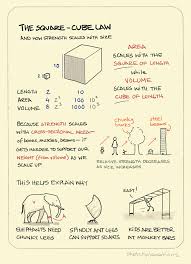 THE SQUARE-CUBE LAW
AND HOW STRENGTH SCALES WITH SIZE
AREA
SCALES WITH THE
SQUARE OF LENGTH
WHILE
VOLUME
SCALES WITH THE
CUBE OF LENGTH
LENGTH 2 10
AREA 4 2² 100 10²
VOLUME 8 2³ 1000 10³
BECAUSE STRENGTH SCALES
WITH CROSS-SECTIONAL AREA
OF BONES, MUSCLES, BEAMS
IT GETS HARDER TO SUPPORT OUR
WEIGHT (FROM VOLUME) AS WE
SCALE UP
chunky
trunks
steel
beams
RELATIVE STRENGTH DECREASES
AS SIZE INCREASES
THIS HELPS EXPLAIN WHY
EASY!
ELEPHANTS NEED
CHUNKY LEGS
SPINDLY ANT LEGS
CAN SUPPORT
KIDS ARE BETTER
AT MONKEY BARS